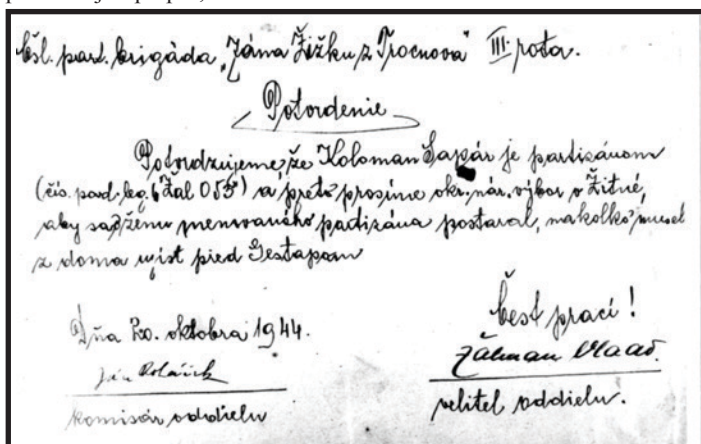 čsl. part. brigáda „Jána Žižku z Trocnova" III. rota.
Potvrdenie
Potvrdzujeme, že Koloman Gašpár je partizánom
(čís. part. leg. "Žal 053") a preto prosíme okr. nár. výbor v Žitné,
aby sa o ženu menovaného partizána postaral, nakoľko musel
z doma ujsť pred Gestapom
Dňa 20. oktobra 1944.
Česť práci!
Ján
Zátman Vlaď.
komisár oddielu
velitel oddielu.